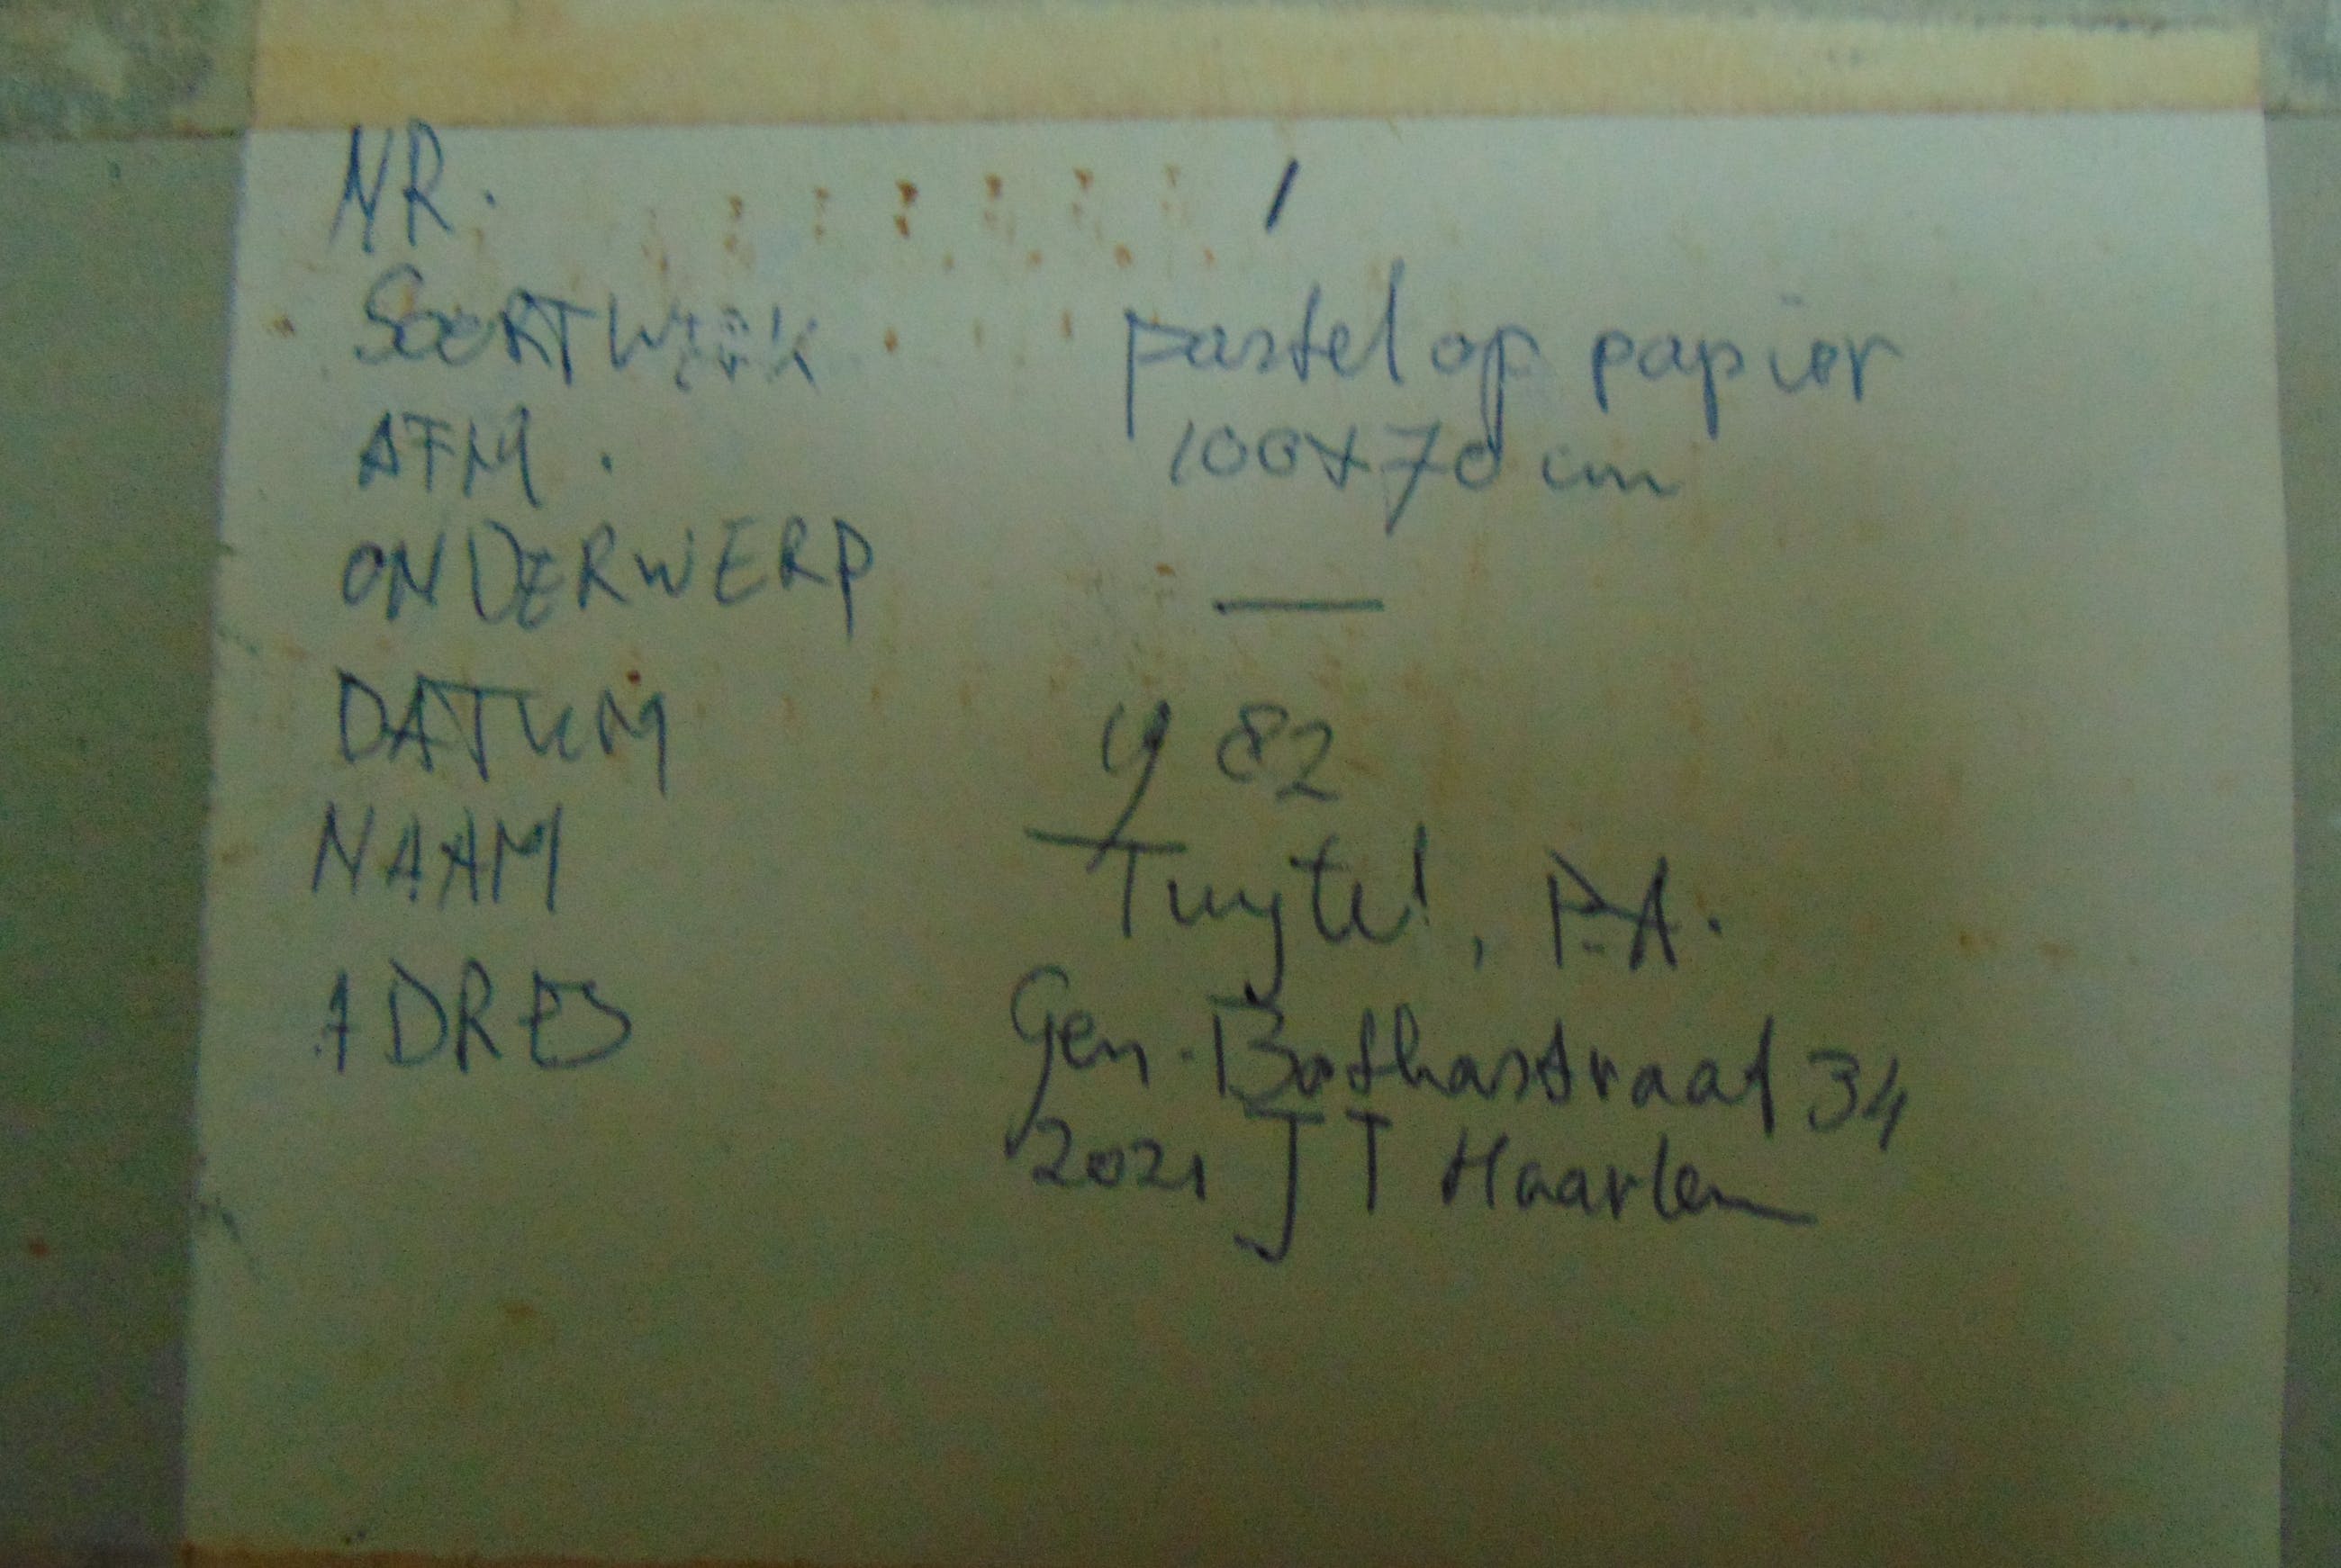 NR. 1
SOORT WERK pastel op papier
AFM. 100x70 cm
ONDERWERP —
DATUM 82
NAAM Tuytel, P.A.
ADRES Gen. Bothastraat 34
2021 JT Haarlem